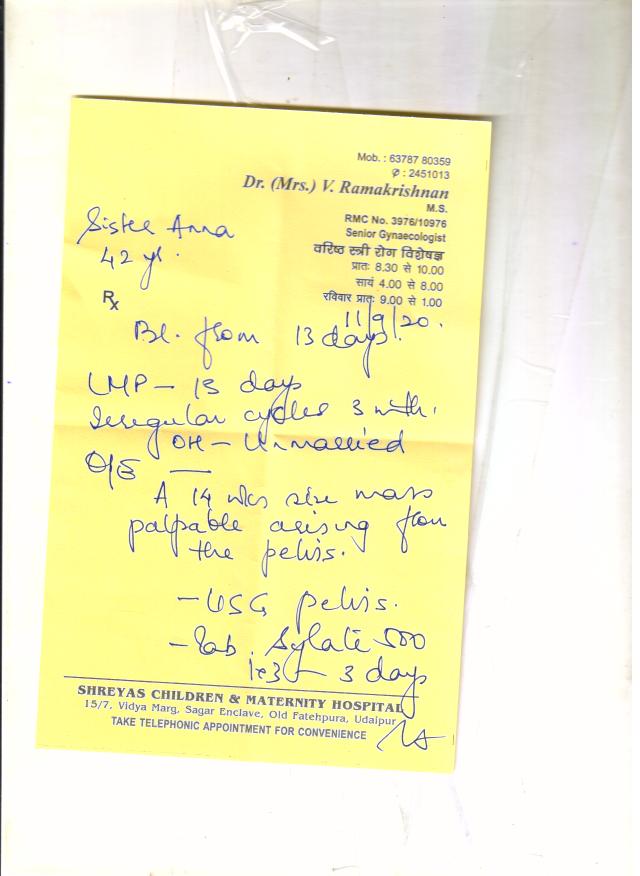 Mob. : 63787 80359
✆ : 2451013
Dr. (Mrs.) V. Ramakrishnan
M.S.
RMC No. 3976/10976
Senior Gynaecologist
वरिष्ठ स्त्री रोग विशेषज्ञ
प्रातः 8.30 से 10.00
सायं 4.00 से 8.00
रविवार प्रातः 9.00 से 1.00
Sister Anna
42 yr.
Rx
11/9/20.
Bl. from 13 days.
LMP - 13 days
Irregular cycles 3 mths.
OH - Unmarried
O/E —
A 14 wks size mass
palpable arising from
the pelvis.
- USG pelvis.
- Tab. Sylate 500
1x3 - 3 days
SHREYAS CHILDREN & MATERNITY HOSPITAL
15/7, Vidya Marg, Sagar Enclave, Old Fatehpura, Udaipur
TAKE TELEPHONIC APPOINTMENT FOR CONVENIENCE